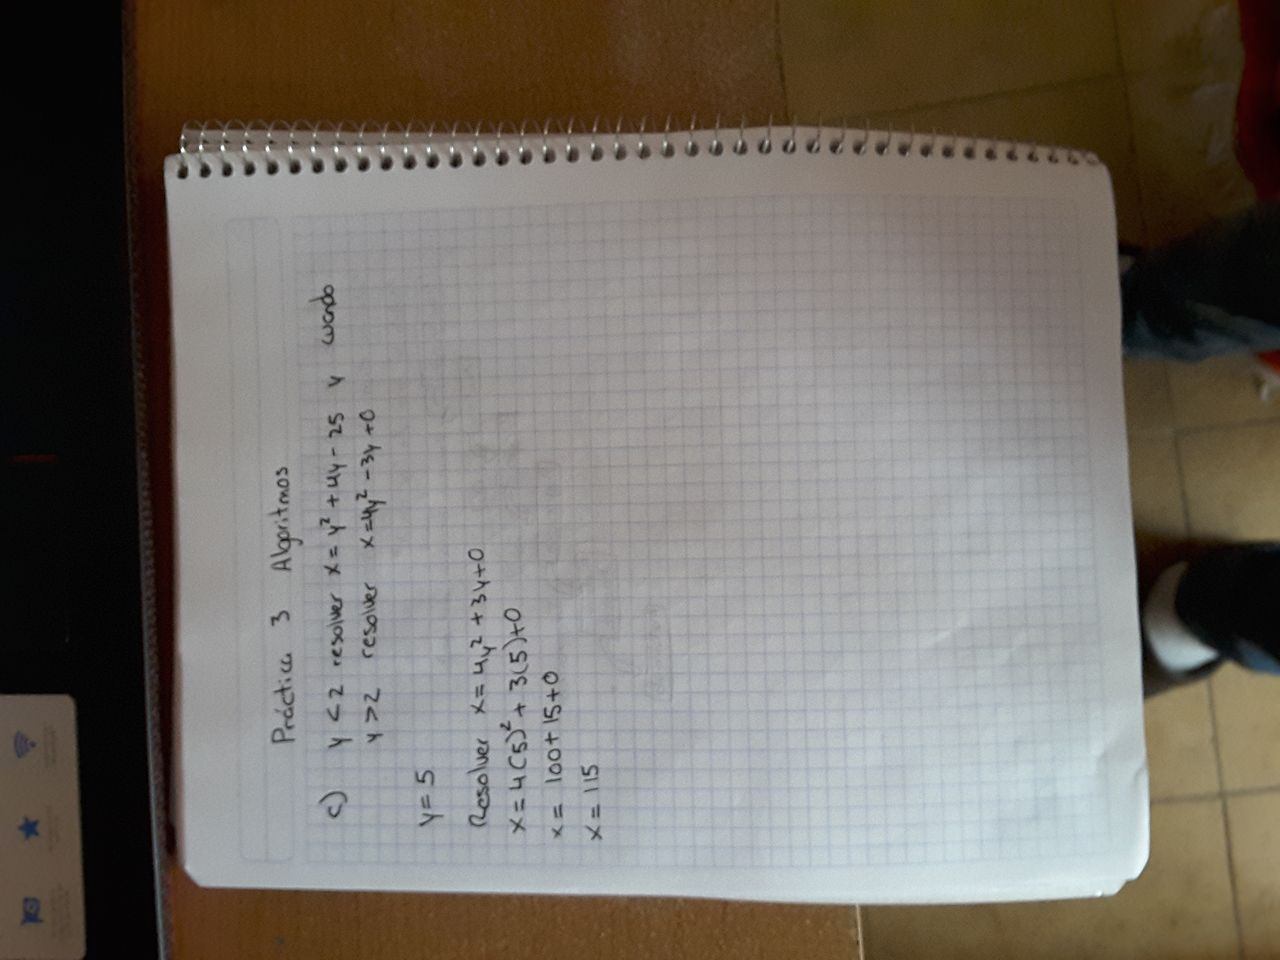 Práctica 3 Algoritmos
c) y < 2 resolver x = y² + 4y - 25 y cuando
y > 2 resolver x = 4y² - 3y + 0
y = 5
Resolver x = 4y² + 3y + 0
x = 4(5)² + 3(5) + 0
x = 100 + 15 + 0
x = 115